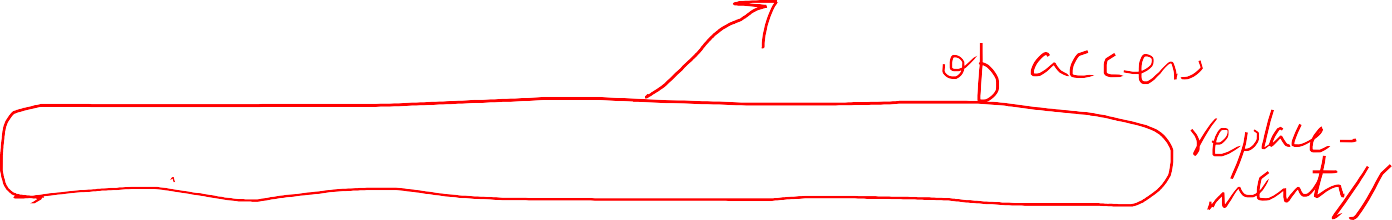 of access
replace-
ment//